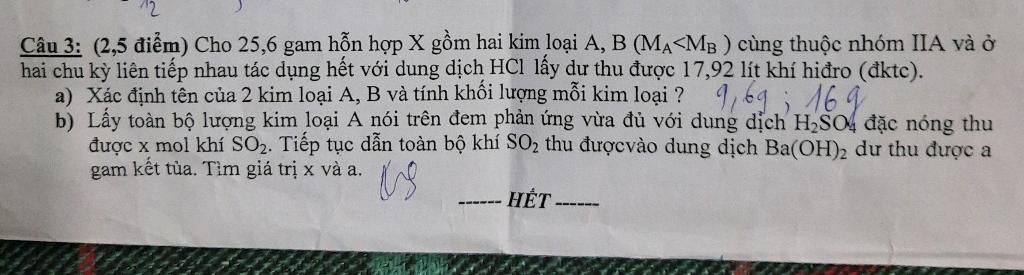 12
Câu 3: (2,5 điểm) Cho 25,6 gam hỗn hợp X gồm hai kim loại A, B (MA<MB ) cùng thuộc nhóm IIA và ở
hai chu kỳ liên tiếp nhau tác dụng hết với dung dịch HCl lấy dư thu được 17,92 lít khí hiđro (đktc).
a) Xác định tên của 2 kim loại A, B và tính khối lượng mỗi kim loại ? 9,6g ; 16g
b) Lấy toàn bộ lượng kim loại A nói trên đem phản ứng vừa đủ với dung dịch H2SO4 đặc nóng thu
được x mol khí SO2. Tiếp tục dẫn toàn bộ khí SO2 thu đượcvào dung dịch Ba(OH)2 dư thu được a
gam kết tủa. Tìm giá trị x và a.
------ HẾT ------